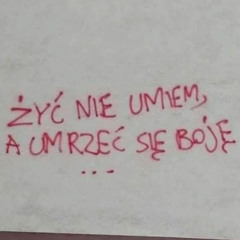 ŻYĆ NIE UMIEM,
A UMRZEĆ SIĘ BOJĘ
...